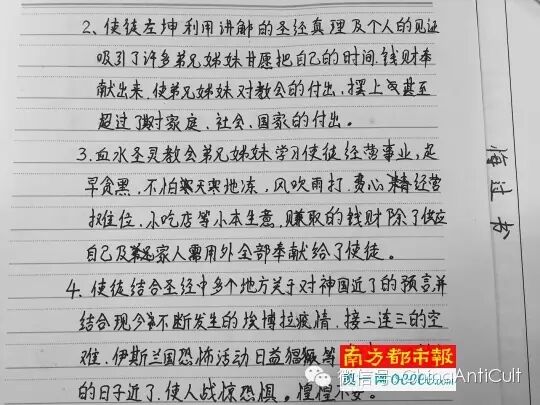 2、使徒左坤利用讲解的圣经真理及个人的见证
吸引了许多弟兄姊妹甘愿把自己的时间、钱财奉
献出来、使弟兄姊妹对教会的付出、摆上 甚至
超过了对家庭、社会、国家的付出。
3、血水圣灵教会弟兄姊妹学习使徒经营事业,起
早贪黑,不怕寒天寒地冻,风吹雨打.费心 经营
投住位、小吃店等小本生意,赚取的钱财除了供应
自己及 家人需用外全部奉献给了使徒。
4、使徒结合圣经中多个地方关于对神国近了的预言,并
结合现今不断发生的埃博拉疫情,接二连三的空
难、伊斯兰国恐怖活动日益猖獗等
的日子近了,使人战惊恐惧。惶惶不安。
悔过书
南方都市報
微信号: ChinaAntiCult